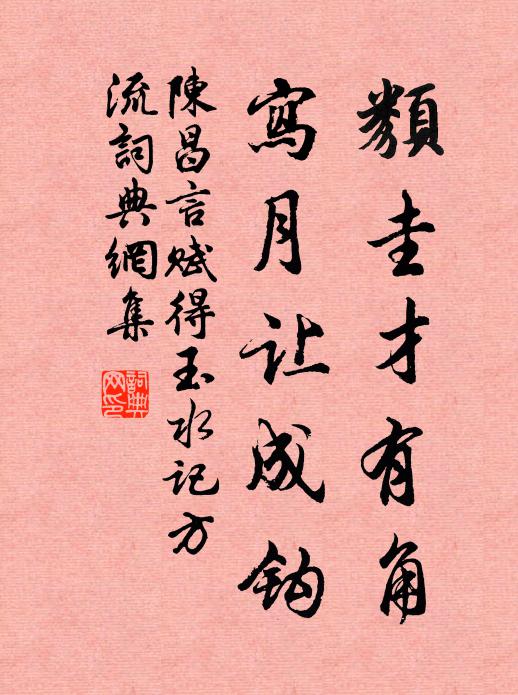 類圭才有角
寫月让成鈎
陳昌言赋得玉水记方
流詞典網集
詞典网印